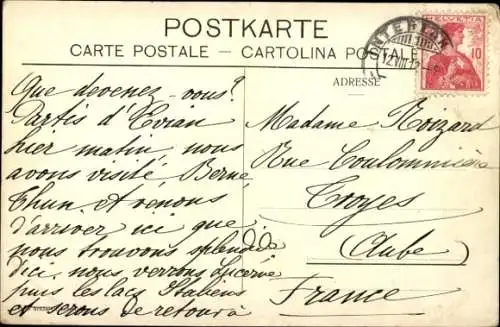 POSTKARTE
CARTE POSTALE — CARTOLINA POSTALE
ADRESSE
HELVETIA
10
INTERLAKEN
12.VIII.12
Que devenez-vous?
Partis d'Evian
hier matin nous
avons visité Berne
Thun et venons
d'arriver ici que
nous trouvons splendide
d'ici nous verrons Lucerne
puis les lacs Italiens
et serons de retour à
Madame Roizard
Rue Coulommière
Troyes
(Aube)
France